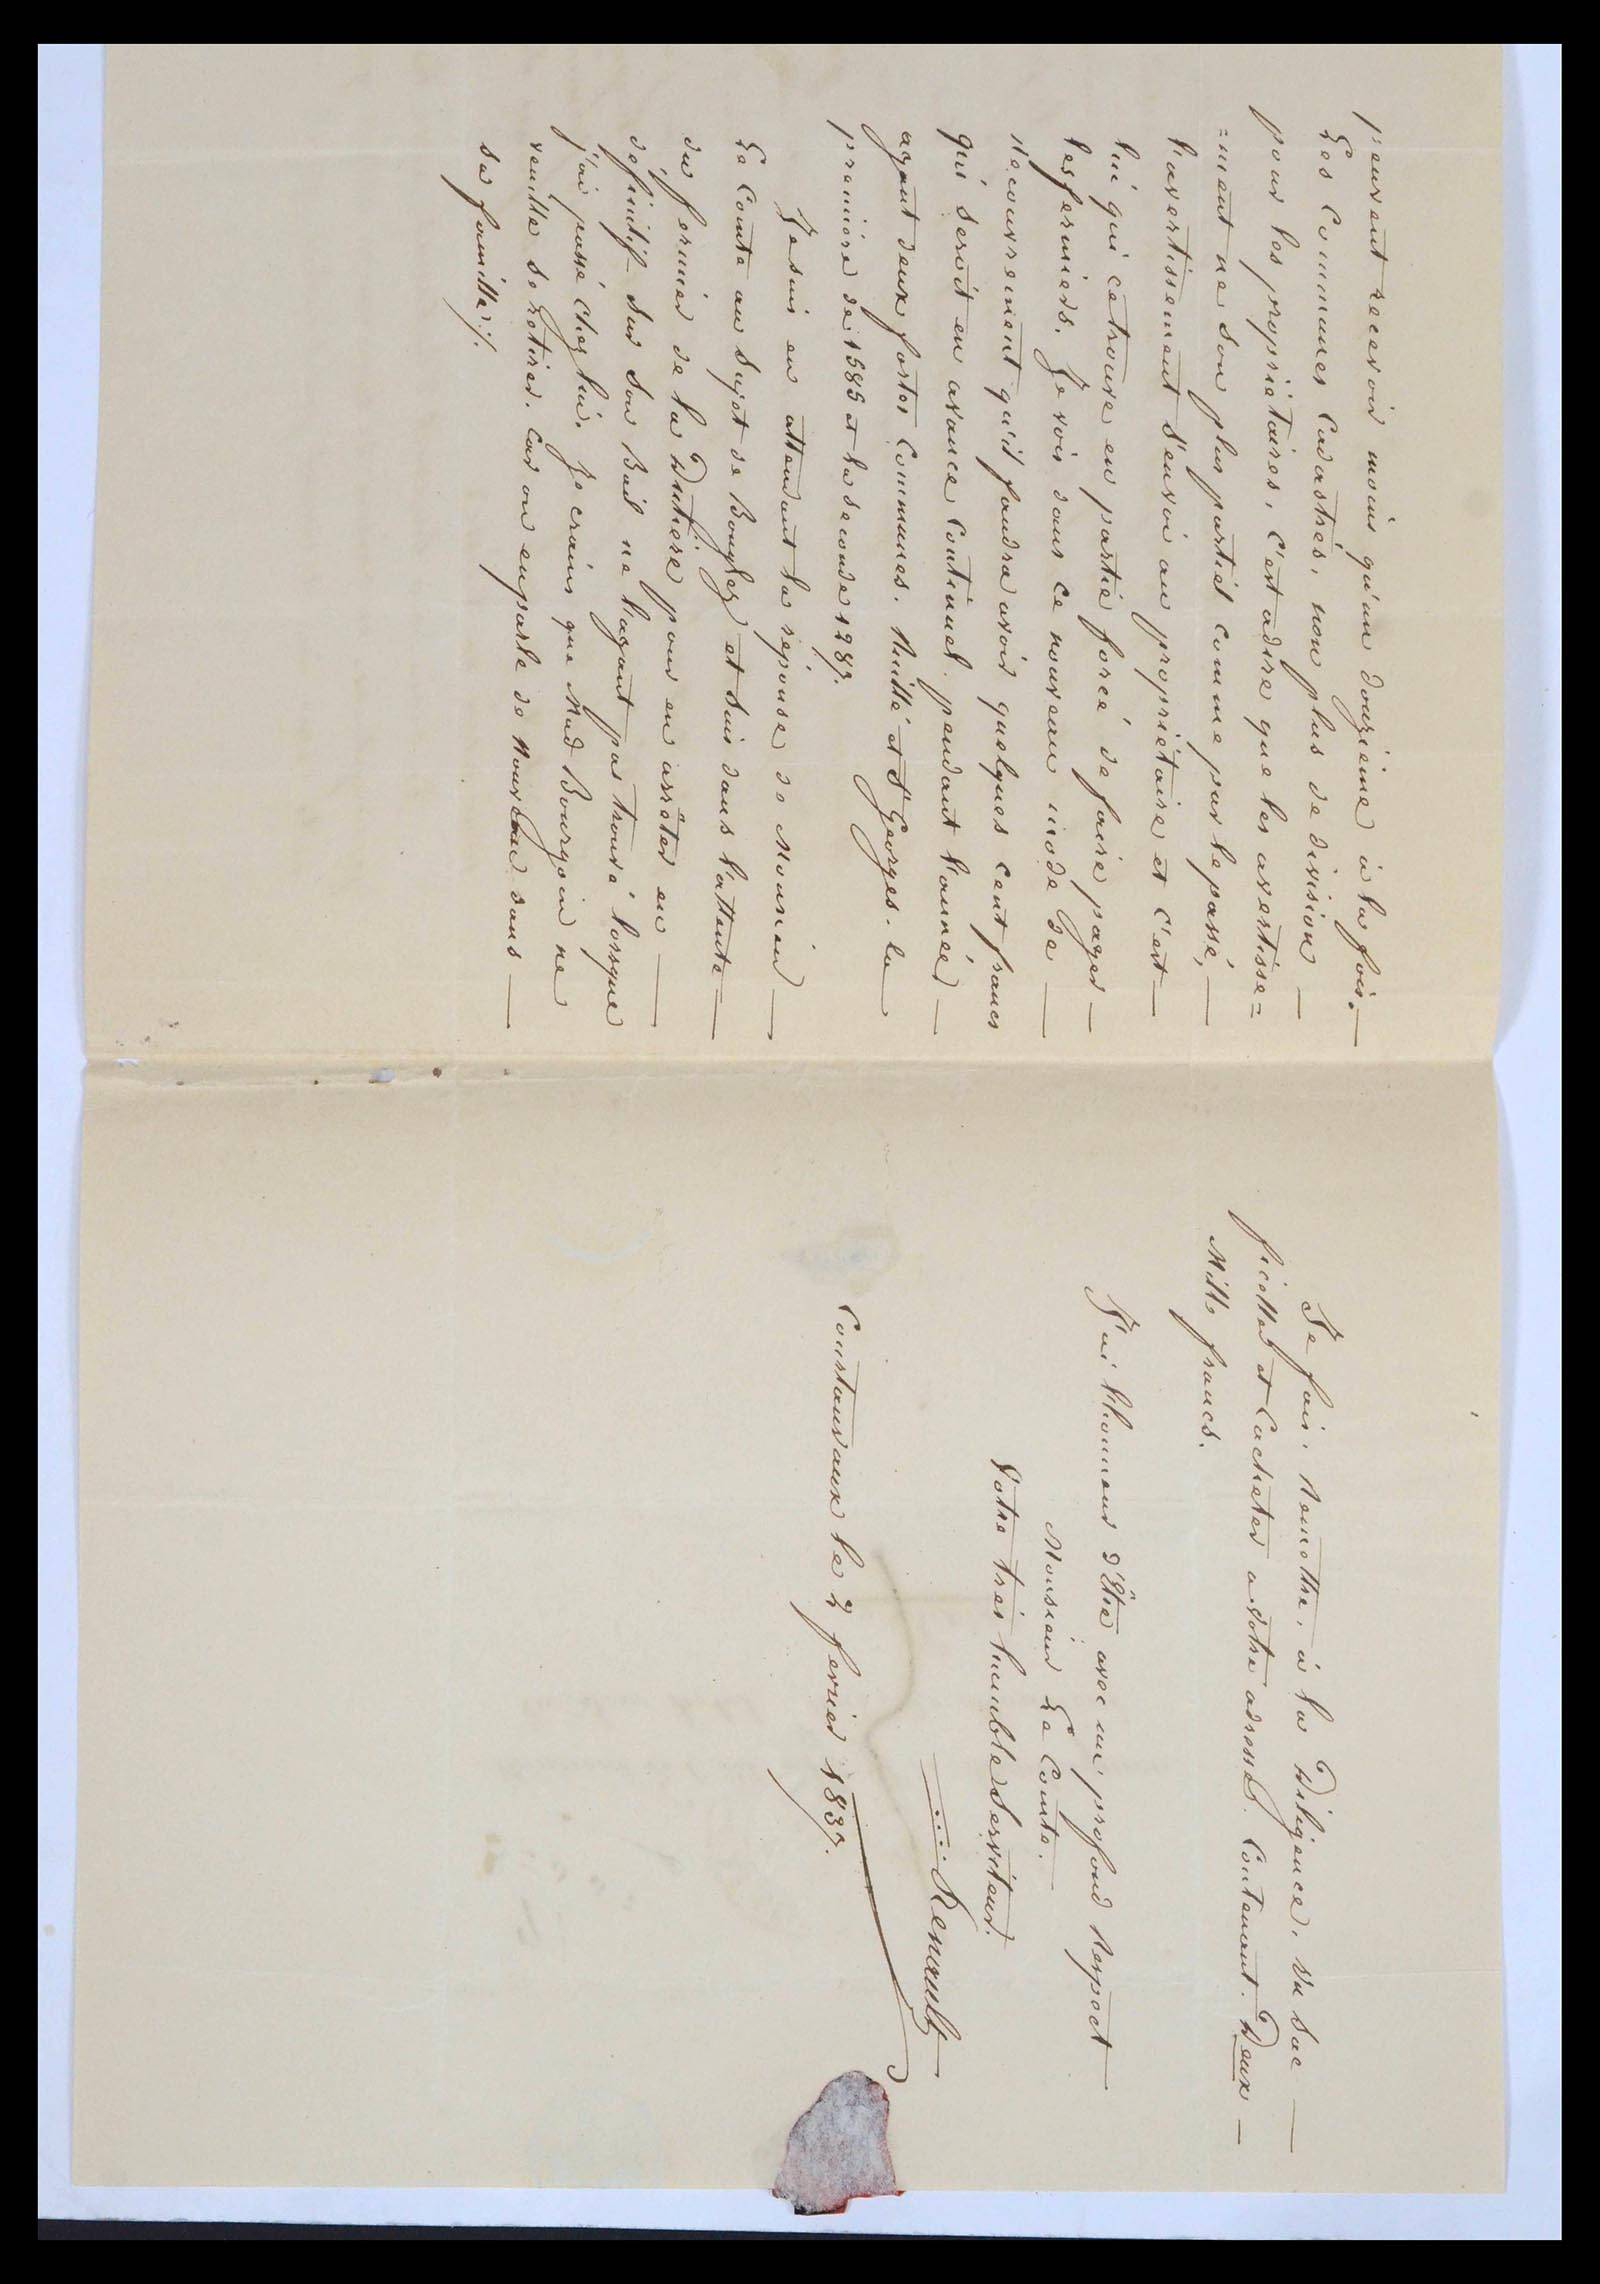 peuvent recevoir moins qu'un douzième à la fois. —
Les Communes Cadastrés, non plus de division —
pour les propriétaires, C'est adire que les avertisse=
=ment ne son plus partiét comme par le passé, —
l'avertissement s'envoi au propriétaire et c'est —
lui qui ce trouve en partié forcé de faire payer —
les fermiers. Je vois dans ce nouveau mode de —
Recouvrement qu'il faudra avoir quelques cent francs
qui seroit en avance Continuel pendant l'année —
ayant deux fortes Communes. Nuillé et St Georges. la —
première de 1585 et la seconde 1287.
Je suis en attendant la réponse de Monsieur —
Le Comte au Sujet de Bouglez et suis dans l'attente —
du fermier de la Duherie pour en arrêter en —
définitif Sur Son Bail ne l'ayant pas trouvé lorsque
j'ai passé chez lui. Je crains que Mad Bourgoin ne
veuille se retirer. Car on en parle de Nouveau dans —
sa famille ./.
Je fais, Remettre, à la Diligence, un Sac —
ficellét et Cacheter a votre adresse. Contenant. Deux —
Mille francs.
J'ai l'honneur d'Être avec un profond Respect —
Monsieur Le Comte. —
Votre très humble Serviteur.
Renault
Coustauraux le 2 fevrier 1837.